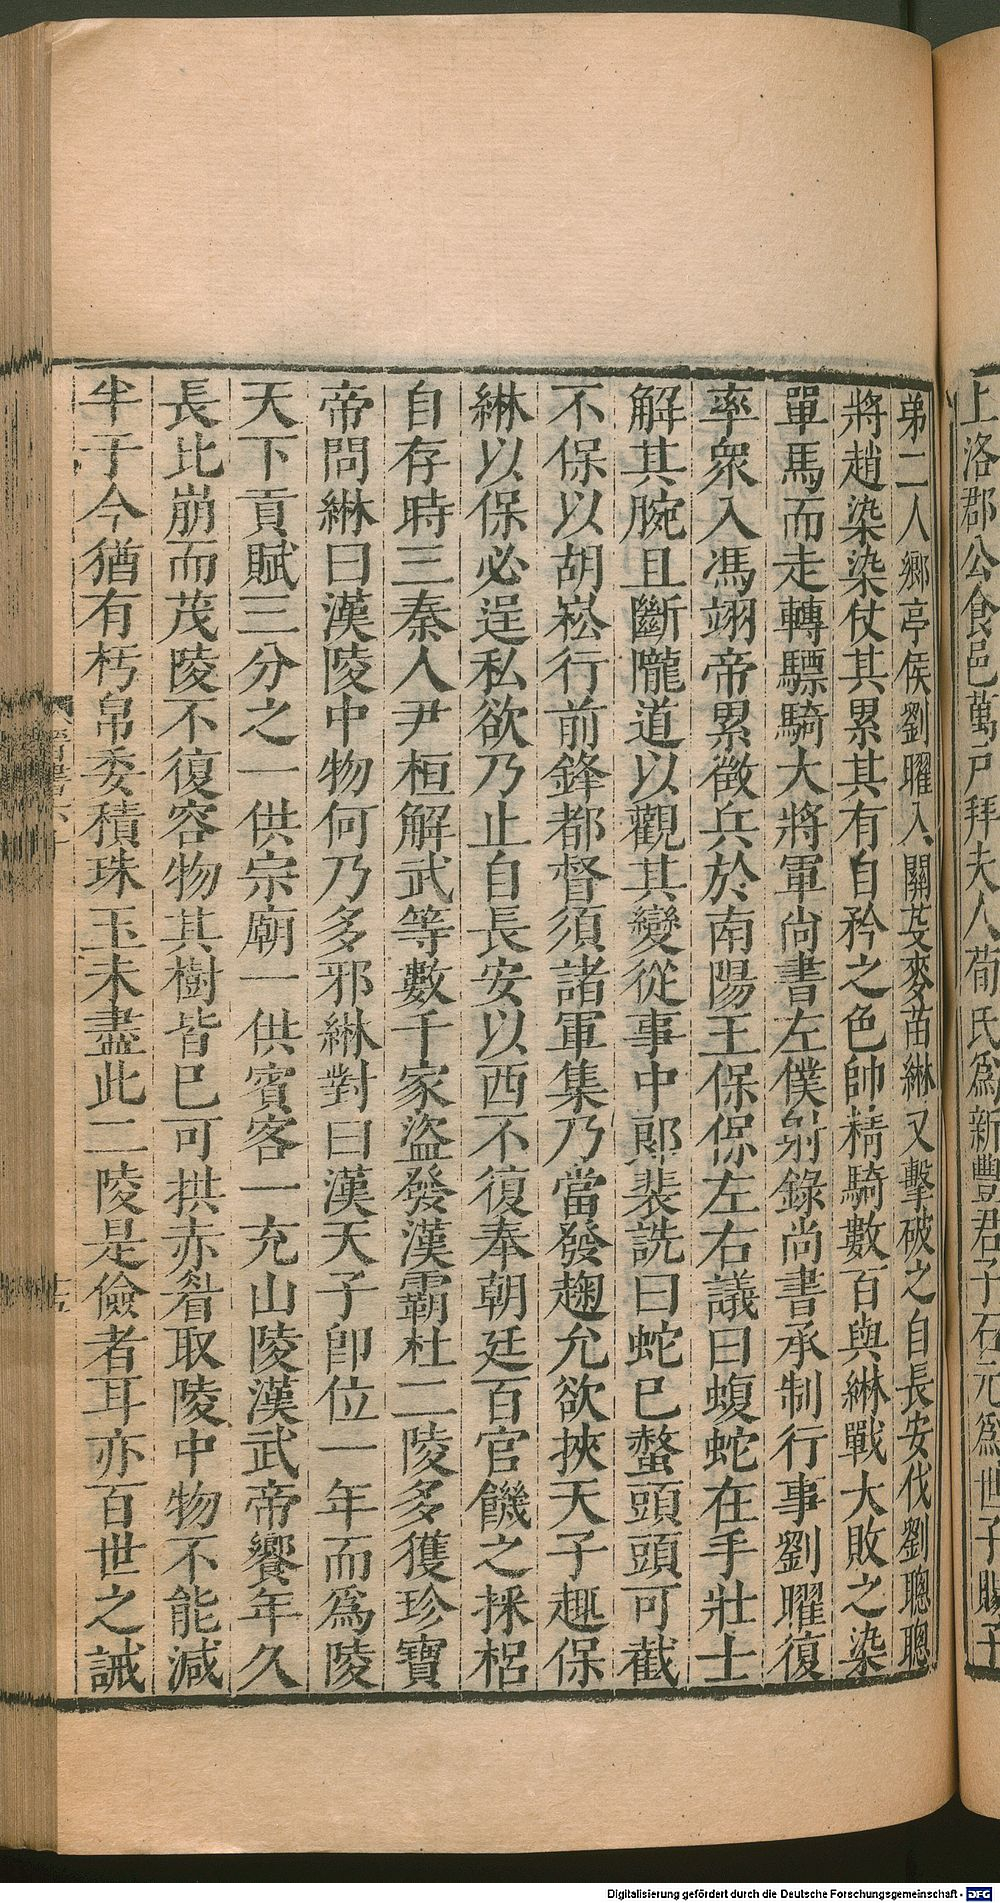 上洛郡公食邑萬戸拜夫人荀氏爲新豐君子石元爲世子賜子
弟二人鄉亭侯劉曜入關芟麥苗綝又擊破之自長安伐劉聰聰
將趙染染仗其累其有自矜之色帥精騎數百與綝戰大敗之染
單馬而走轉驃騎大將軍尚書左僕射錄尚書承制行事劉曜復
率衆入馮翊帝累徵兵於南陽王保保左右議曰蝮蛇在手壯士
解其腕且斷隴道以觀其變從事中郎裴詵曰蛇已螫頭頭可截
不保以胡崧行前鋒都督須諸軍集乃當發麹允欲挾天子趣保
綝以保必逞私欲乃止自長安以西不復奉朝廷百官饑乏採梠
自存時三秦人尹桓解武等數千家盜發漢霸杜二陵多獲珍寶
帝問綝曰漢陵中物何乃多邪綝對曰漢天子卽位一年而爲陵
天下貢賦三分之一供宗廟一供賓客一充山陵漢武帝饗年久
長比崩而茂陵不復容物其樹皆已可拱赤眉取陵中物不能減
半于今猶有朽帛委積珠玉未盡此二陵是儉者耳亦百世之誡
晉書六十
十五
Digitalisierung gefördert durch die Deutsche Forschungsgemeinschaft - DFG